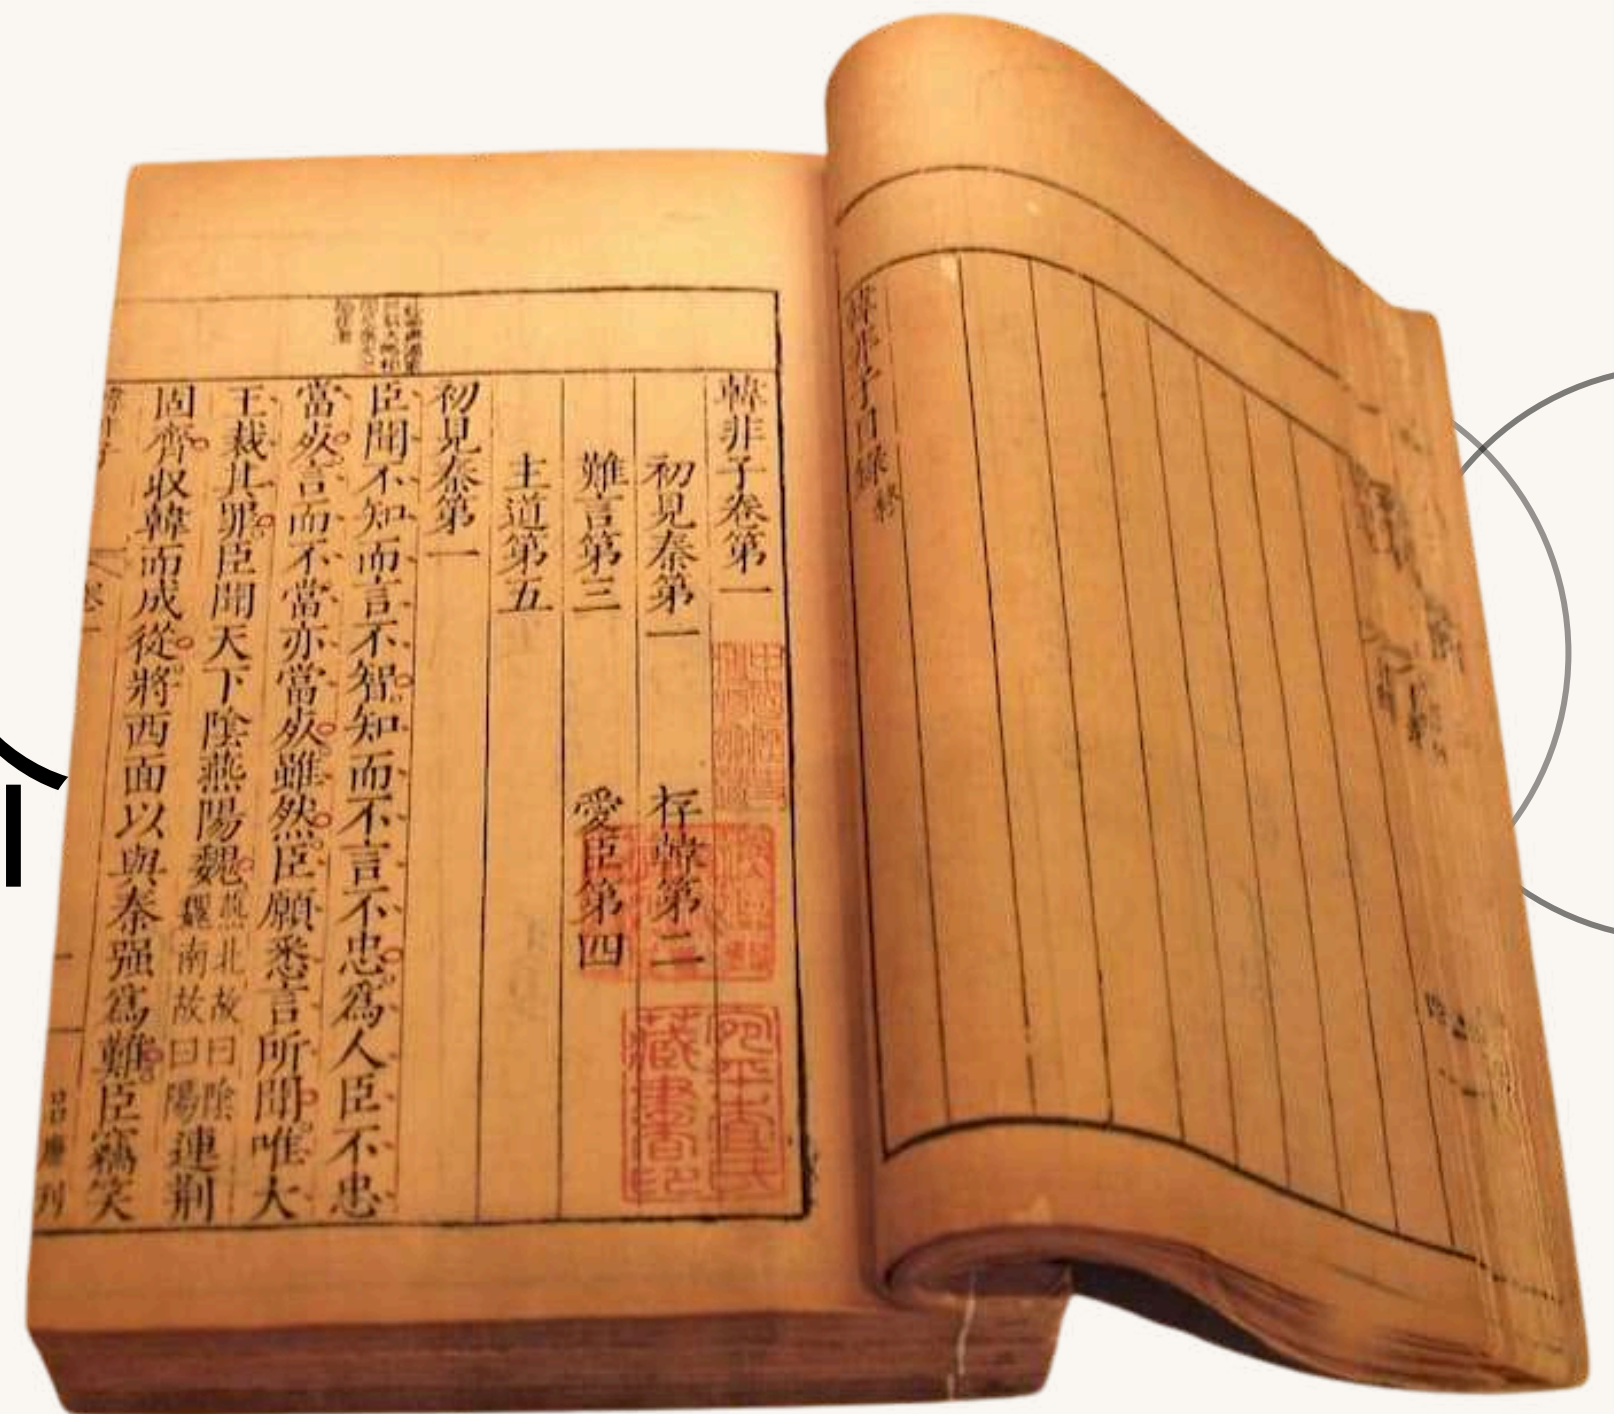 韓非子目錄終
韓非子卷第一
初見秦第一 存韓第二
難言第三 愛臣第四
主道第五
初見秦第一
臣聞不知而言不智知而不言不忠爲人臣不忠
當死言而不當亦當死雖然臣願悉言所聞唯大
王裁其罪臣聞天下陰燕陽魏燕北故曰陰魏南故曰陽連荆
固齊収韓而成從將西面以與秦强爲難臣竊笑
宛平查氏
藏書印